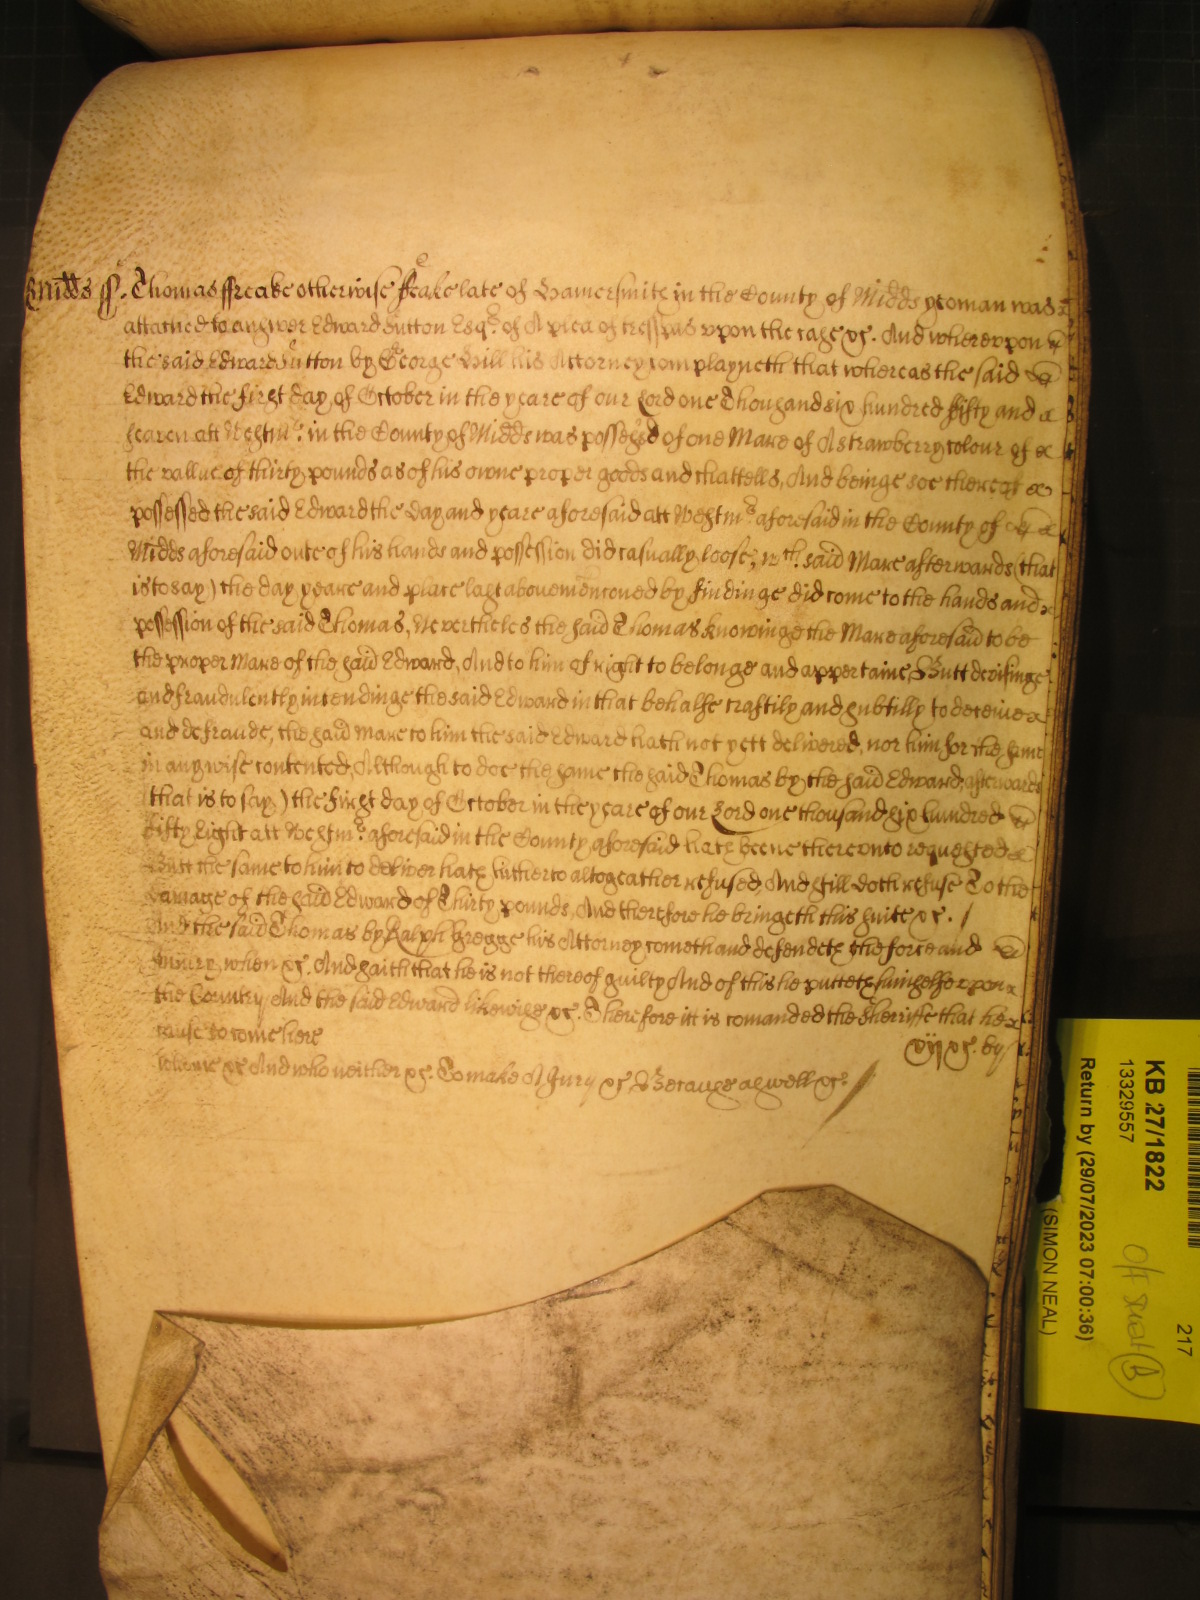 Midds ss. Thomas Freake otherwise Feake late of Hamersmith in the County of Midds yeoman was
attached to answer Edward Sutton Esqr of A plea of tresspas upon the case &c. And whereupon
the said Edward Sutton by George Hill his Attorney complayneth that whereas the said
Edward the first day of October in the yeare of our Lord one Thousand six hundred fifty and
seaven att Westmr. in the County of Midds was possessed of one Mare of A strawberry colour of
the vallue of thirty pounds as of his owne proper goods and chattells, And beinge soe thereof
possessed the said Edward the day and yeare aforesaid att Westmr aforesaid in the County of
Midds aforesaid oute of his hands and possession did casually loose, wch. said Mare afterwards (that
is to say) the day yeare and place last abovemencioned by findinge did come to the hands and
possession of the said Thomas, Neverthelés the said Thomas knowinge the Mare aforesaid to be
the proper Mare of the said Edward, And to him of right to belonge and appertaine Butt devisinge
and fraudulently intendinge the said Edward in that behalfe craftily and subtilly to deceive
and defraude, the said Mare to him the said Edward hath not yett delivered, nor him for the same
in any wise contented, Although to doe the same the said Thomas by the said Edward, afterwards
(that is to say) the first day of October in the yeare of our Lord one thousand six hundred
fifty Eight att Westmr aforesaid in the County aforesaid hath beene thereunto requested
Butt the same to him to deliver hath hitherto altogeather refused, And still doth refuse To the
damage of the said Edward of Thirty pounds, And therefore he bringeth this suite &c.
And the said Thomas by Ralph Gregge his Attorney cometh and defendeth the force and
Injury when &c. And saith that he is not thereof guilty And of this he putteth himselfe upon
the Country And the said Edward likewise &c. Therefore itt is comanded the Sherriffe that he
cause to come here
xij &c. by
whome &c And who neither &c. To make A Jury &c Because aswell &c.
KB 27/1822
13329557
Return by (29/07/2023 07:00:36)
(SIMON NEAL)
217